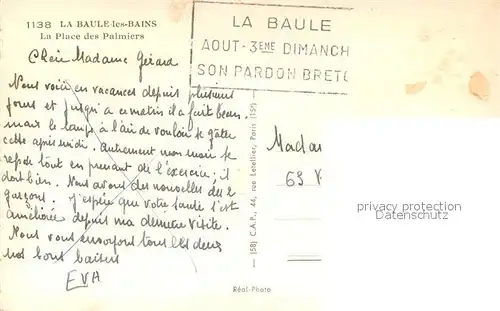 1138 LA BAULE-les-BAINS
La Place des Palmiers
LA BAULE
AOUT-3EME DIMANCH
SON PARDON BRETO
Chère Madame Gérard
Nous voici en vacances depuis plusieurs
jours et jusqu'à ce matin il a fait beau.
mais le temps à l'air de vouloir se gâter
cette après midi. Autrement mon mari se
repose tout en prenant de l'exercice; il
dort bien. Nous avons des nouvelles des 2
garçons. J'espère que votre santé s'est
améliorée depuis ma dernière visite.
Nous vous envoyons tous les deux
nos bons baisers
EVA
Madam
69
(58) C.A.P., 44, rue Letellier, Paris (15e)
Réal-Photo
privacy protection
Datenschutz